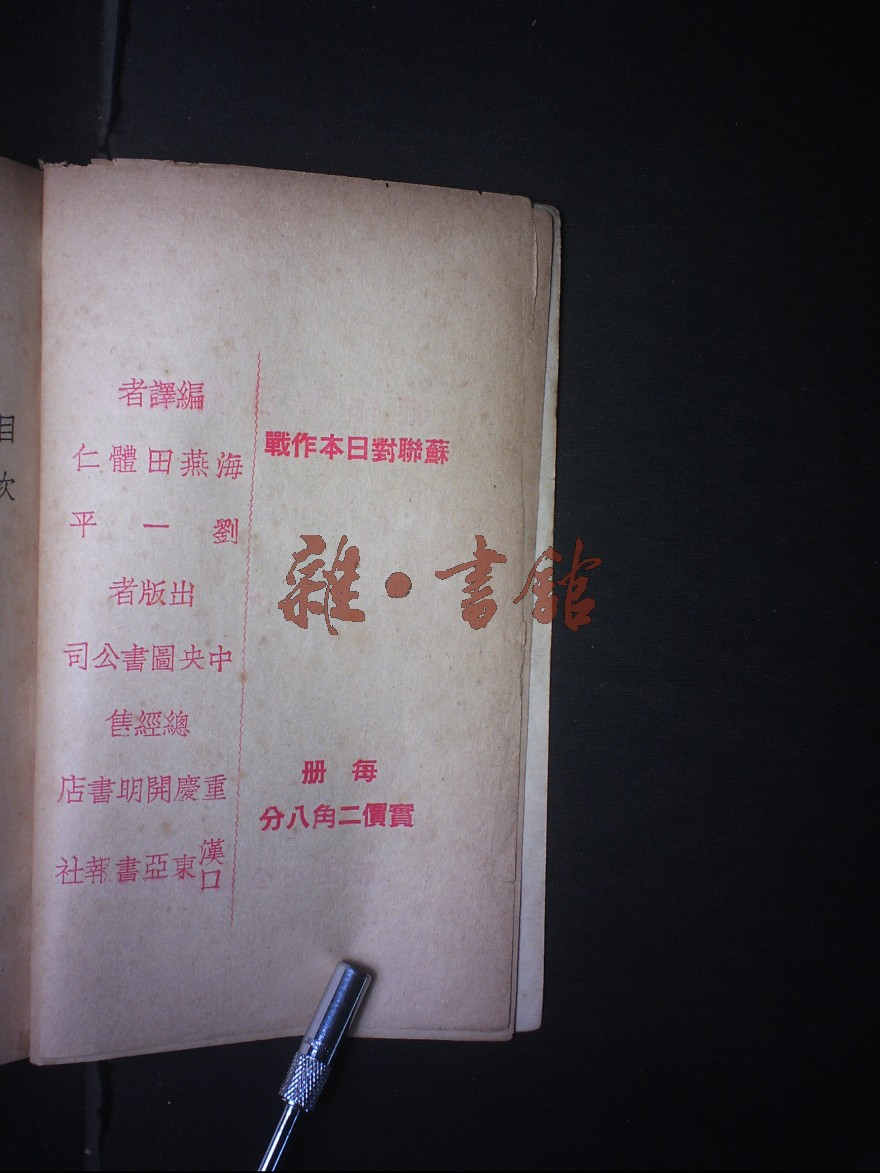 蘇聯對日本作戰
每册
實價二角八分
編譯者
海燕田體仁
劉一平
出版者
中央圖書公司
總經售
重慶開明書店
漢口東亞書報社
雜·書館
目
次